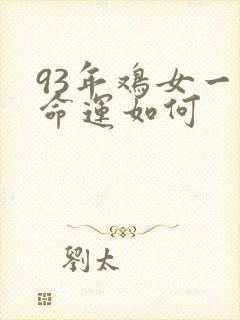 93年鸡女一
命運如何
劉太